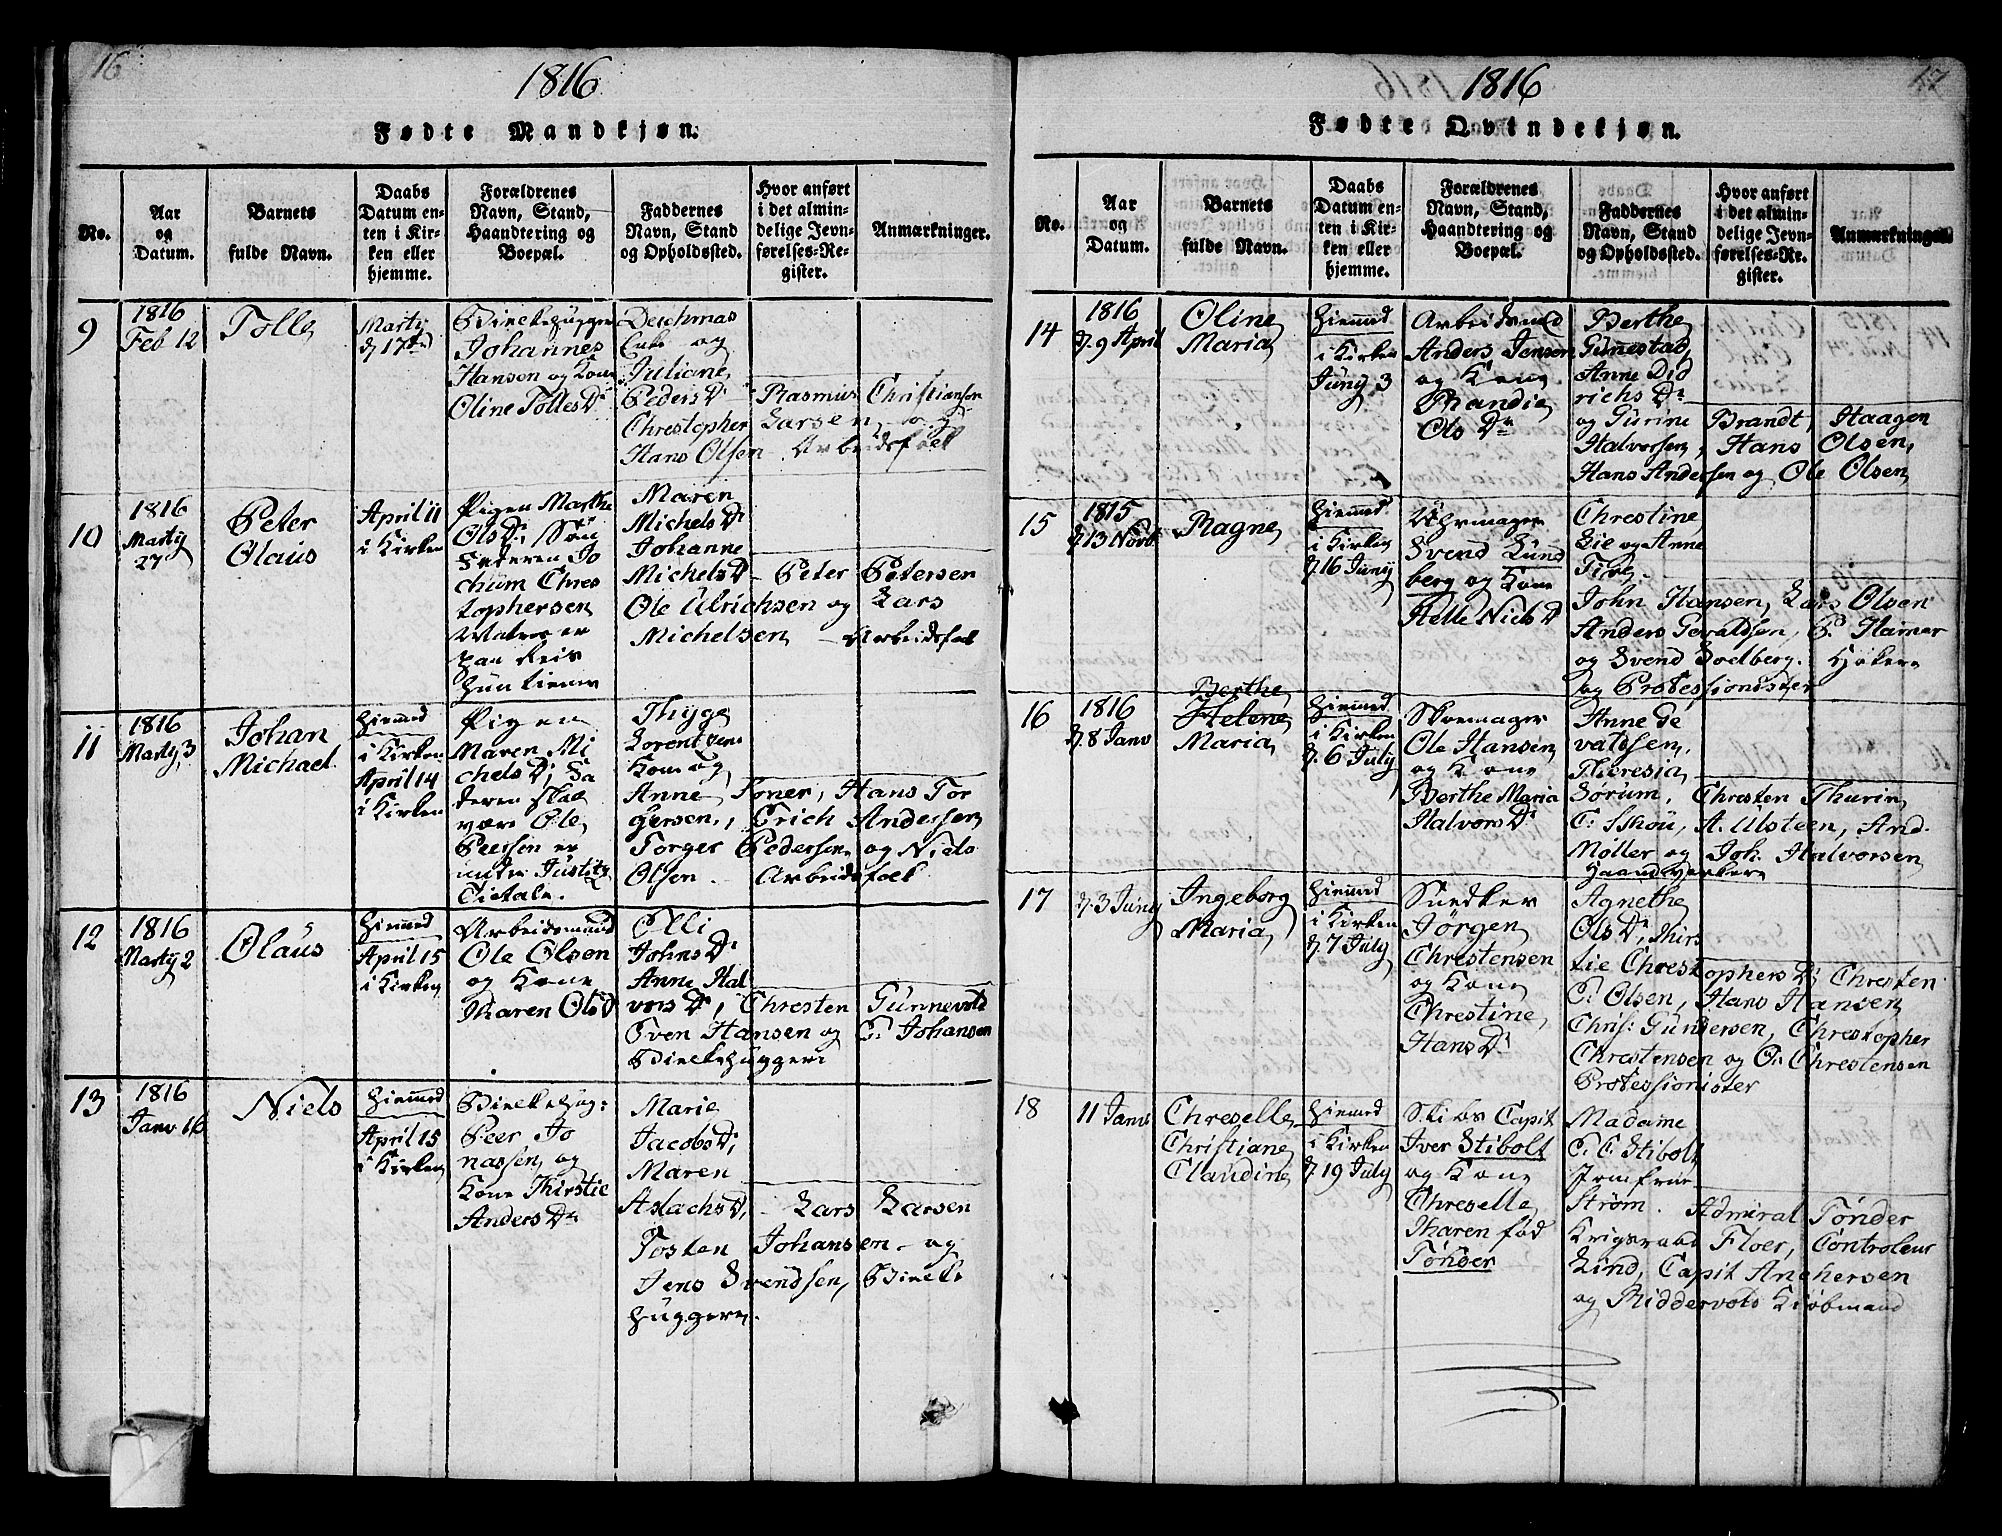 16
1816
Fødte Mandkjøn.
No.
Aar
og
Datum.
Barnets
fulde Navn.
Daabs
Datum en-
ten i Kir-
ken eller
hjemme.
Forældrenes
Navn, Stand,
Haandtering og
Boepæl.
Faddernes
Navn, Stand
og Opholdssted.
Hvor anført
i det almin-
delige Jevn-
førelses-Re-
gister.
Anmærkninger.
9
1816
Feb 12
Tolle
Marty
d 17de
Blokhugger
Johannes
Hansen og Kone
Oline TollesDr
Deichmas
Enke og
Juliane
PedersDr
Christopher
Rasmus Christiansen
Larsen og
Hans Olsen Arbeidsfolk
10
1816
Marty
27
Peter
Olaus
April 11
i Kirken
Pigen Marthe
OlsDr; Søn
Faderen Jo
chum Chres
tophersen
Maren
MichelsDr
Johanne
MichelsD - Peter Petersen
Ole Ulrichsen og Lars
Michelsen - Arbeidsfolk
11
1816
Marty 3
Johan
Michael
Hiemmed
i Kirken
April 14
i Kirken
Pigen
Maren Mi
chelsDr; Fa
deren skal
være Ole
Peersen er
under Justitz
Tietale.
Thyge
Lorentsens
Kone og
Anne Toner, Hans Tor
gersen, Erich Andersen
Torger Pedersen og Niels
Olsen. Arbeidsfolk
12
1816
Marty 2
Olaus
Hiemmed
April 15
i Kirken
Arbeidsmand
Ole Olsen
og Kone
Maren OlsD
Elli
JohnsDr
Anne Hal
vorsDr, Chresten Gunnevold
Sven Hansen og C. Johansen
Blokhuggere
13
1816
Janv 16
Niels
Hiemmed
April 15
i Kirken
Blokhug:
Peer Jo
nassen og
Kone Thirstie
AndersDr
Marie
JacobsDr;
Maren
AslachsD, - Lars Larsen
Tosten Johansen - og
Jens Svendsen, Blok
huggere.
17
1816
Fødte Qvindekjøn.
No.
Aar
og
Datum.
Barnets
fulde Navn.
Daabs
Datum en-
ten i Kir-
ken eller
hjemme.
Forældrenes
Navn, Stand,
Haandtering og
Boepæl.
Faddernes
Navn, Stand
og Opholdssted.
Hvor anført
i det almin-
delige Jevn-
førelses-Re-
gister.
Anmærkninger.
14
1816
d. 9 April
Oline
Maria
Hiemmed
i Kirken
Juny 3
Arbeidsmd
Anders Jensen
og Kone
Randie
OlsDr
Berthe
Gunestad,
Anne Did
richsDr
og Gurine Brandt, Haagen
Halvorsen, Hans Olsen,
Hans Andersen og Ole Olsen
15
1815
d. 13 Novb.
Ragne
Hiemmed
i Kirken
d. 16 Juny
Uhrmager
Svend Lund
berg og Kone
Helle NielsD
Chrestine
Lie og Anne
John Hansen, Lars Olsen
Anders Gevaldsen, P. Hamer
og Svend Soelberg.
og Professionister
16
1816
d. 8 Janv
Berthe
Helene
Maria
Hiemmed
i Kirken
d. 6 July
Skomager
Ole Hansen
og Kone
Berthe Maria
HalvorsDr
Anne de
valdsen,
Theresia
Sørum, Chresten Thurin
C. Skou, A. Ulsteen, And.
Møller og Joh. Halvorsen
Haandverkere
17
d. 3 Juny
Ingeborg
Maria
Hiemmed
i Kirken
d. 7 July
Snedker
Jørgen
Chrestensen
og Kone
Chrestine
HansDr
Agnethe
OlsDr, Thirs
tie ChrestophersDr Chresten
C. Olsen, Hans Hansen
Chris: Gundersen, Chrestopher
Chrestensen og O. Chrestensen
Professionister
18
11 Janv
Chreselle
Christiane
Claudine
Hiemmed
i Kirken
d. 19 July
Skibs Capit
Iver Stibolt
og Kone
Chreselle
Maren fød
Tønder
Madame
C. C. Stibolt
Jomfrue
Strøm. Admiral Tønder
Krigsraad Floer, Controleur
Lind, Capit Anchersen
og Riddervolds Kiøbmand